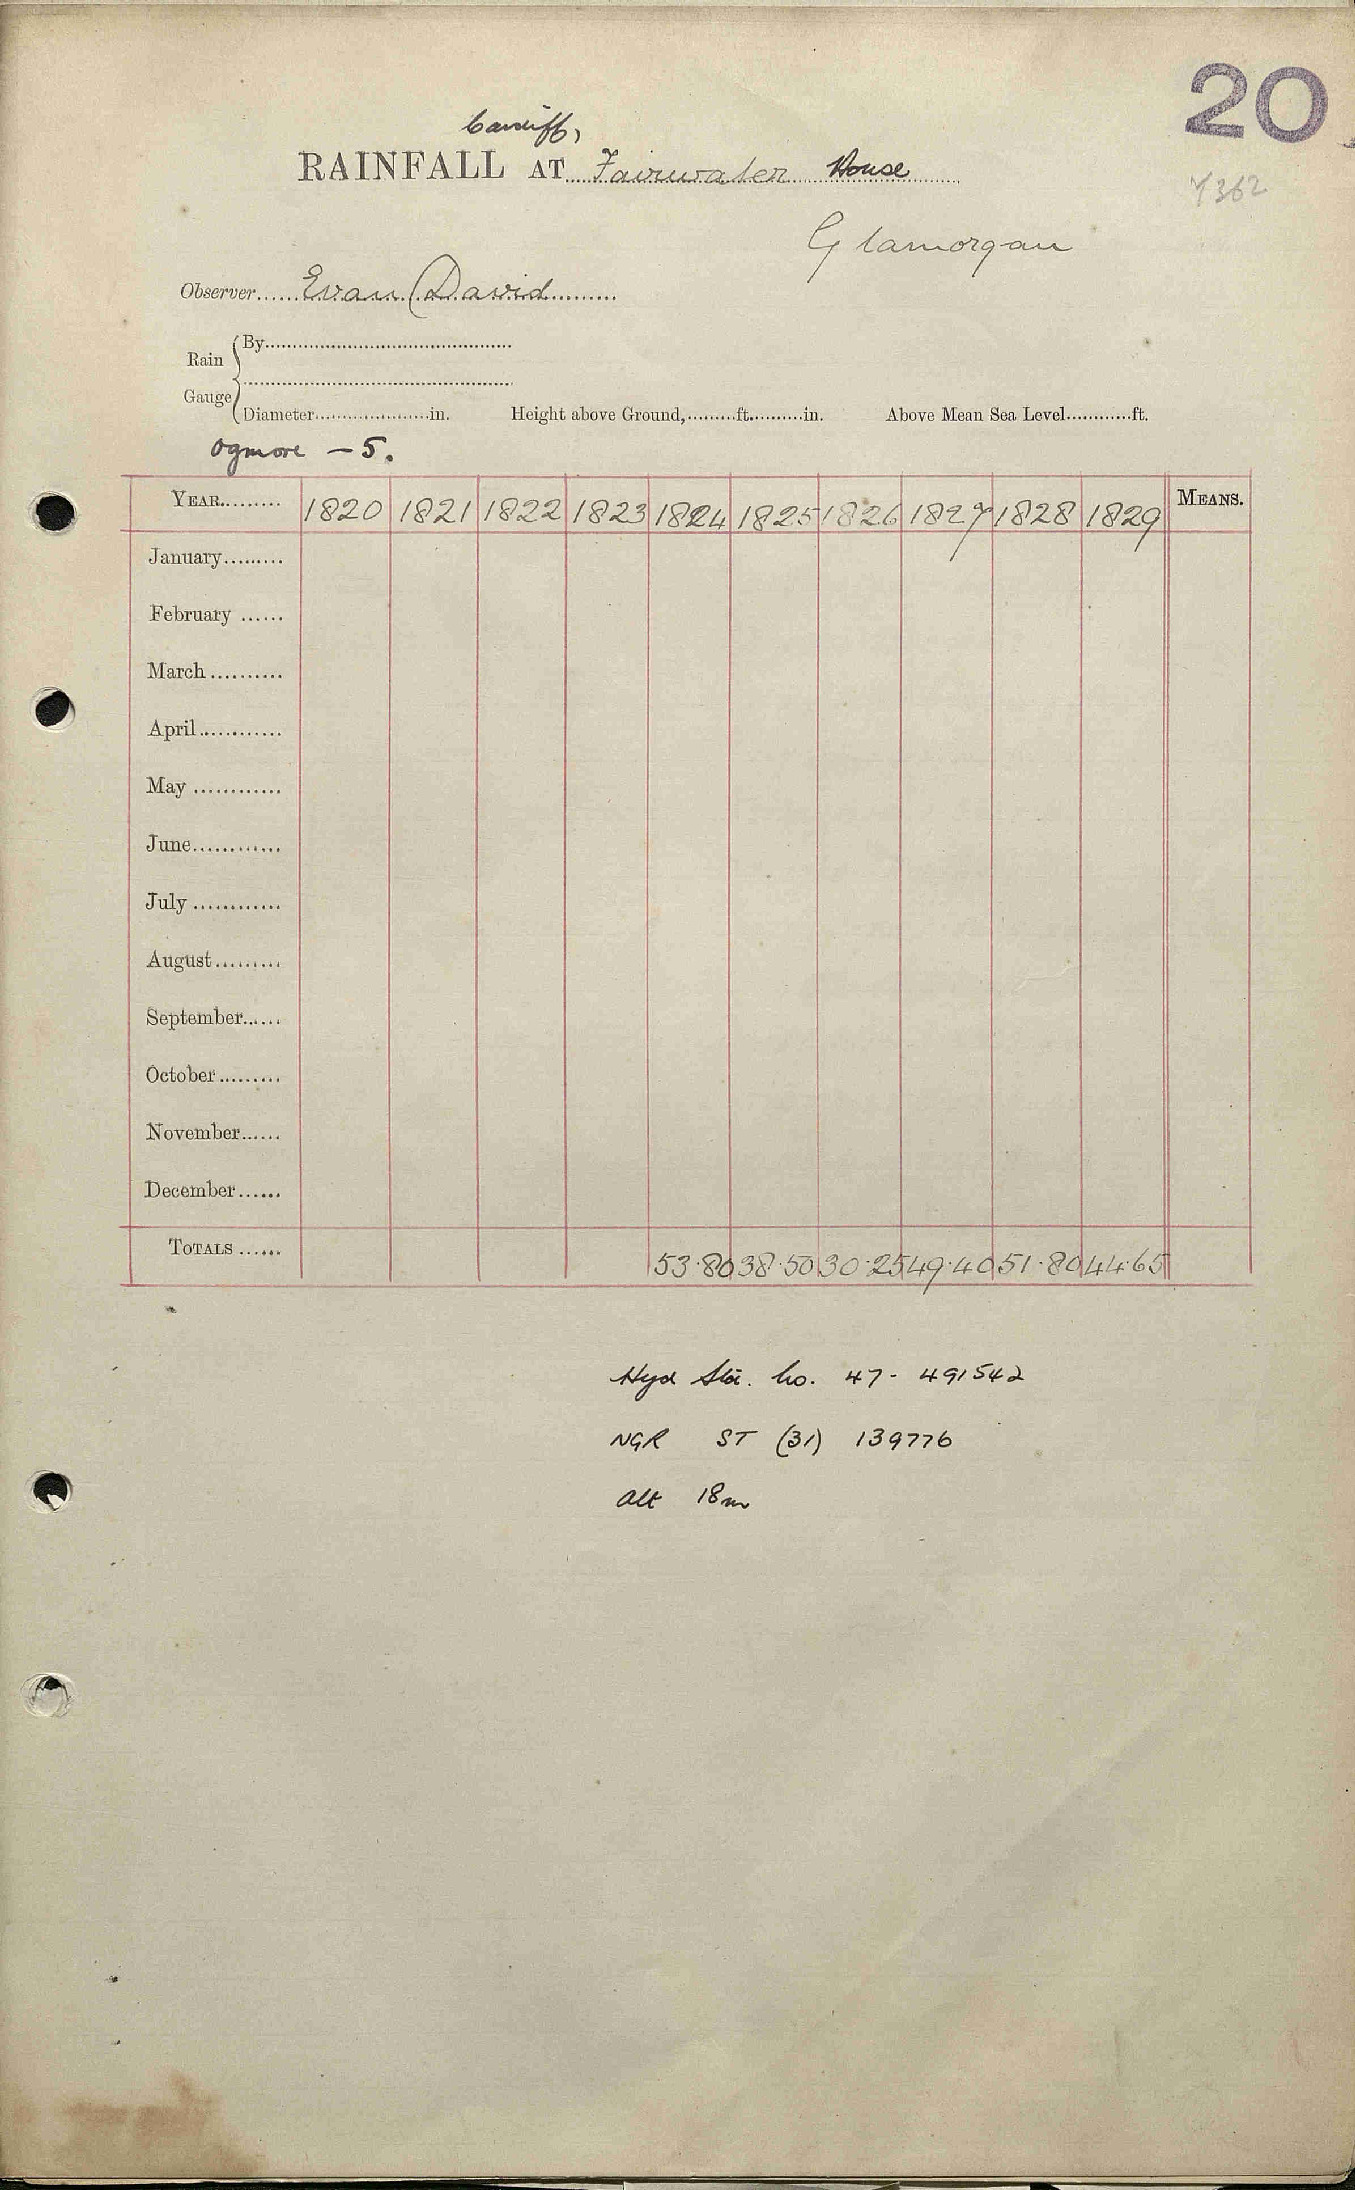 20
Cardiff,
RAINFALL AT Fairwater House
7362
Glamorgan
Observer...... Evan David ..........
Rain Gauge { By..............................................
..................................................
Diameter.....................in. Height above Ground,.........ft..........in. Above Mean Sea Level............ft.
Ogmore – 5.
YEAR......... 1820 1821 1822 1823 1824 1825 1826 1827 1828 1829 MEANS.
January.........
February ......
March..........
April............
May ............
June............
July ............
August.........
September......
October.........
November......
December......
TOTALS ...... 53.80 38.50 30.25 49.40 51.80 44.65
Hyd Sta. No. 47- 491542
NGR ST (31) 139776
Alt 18m